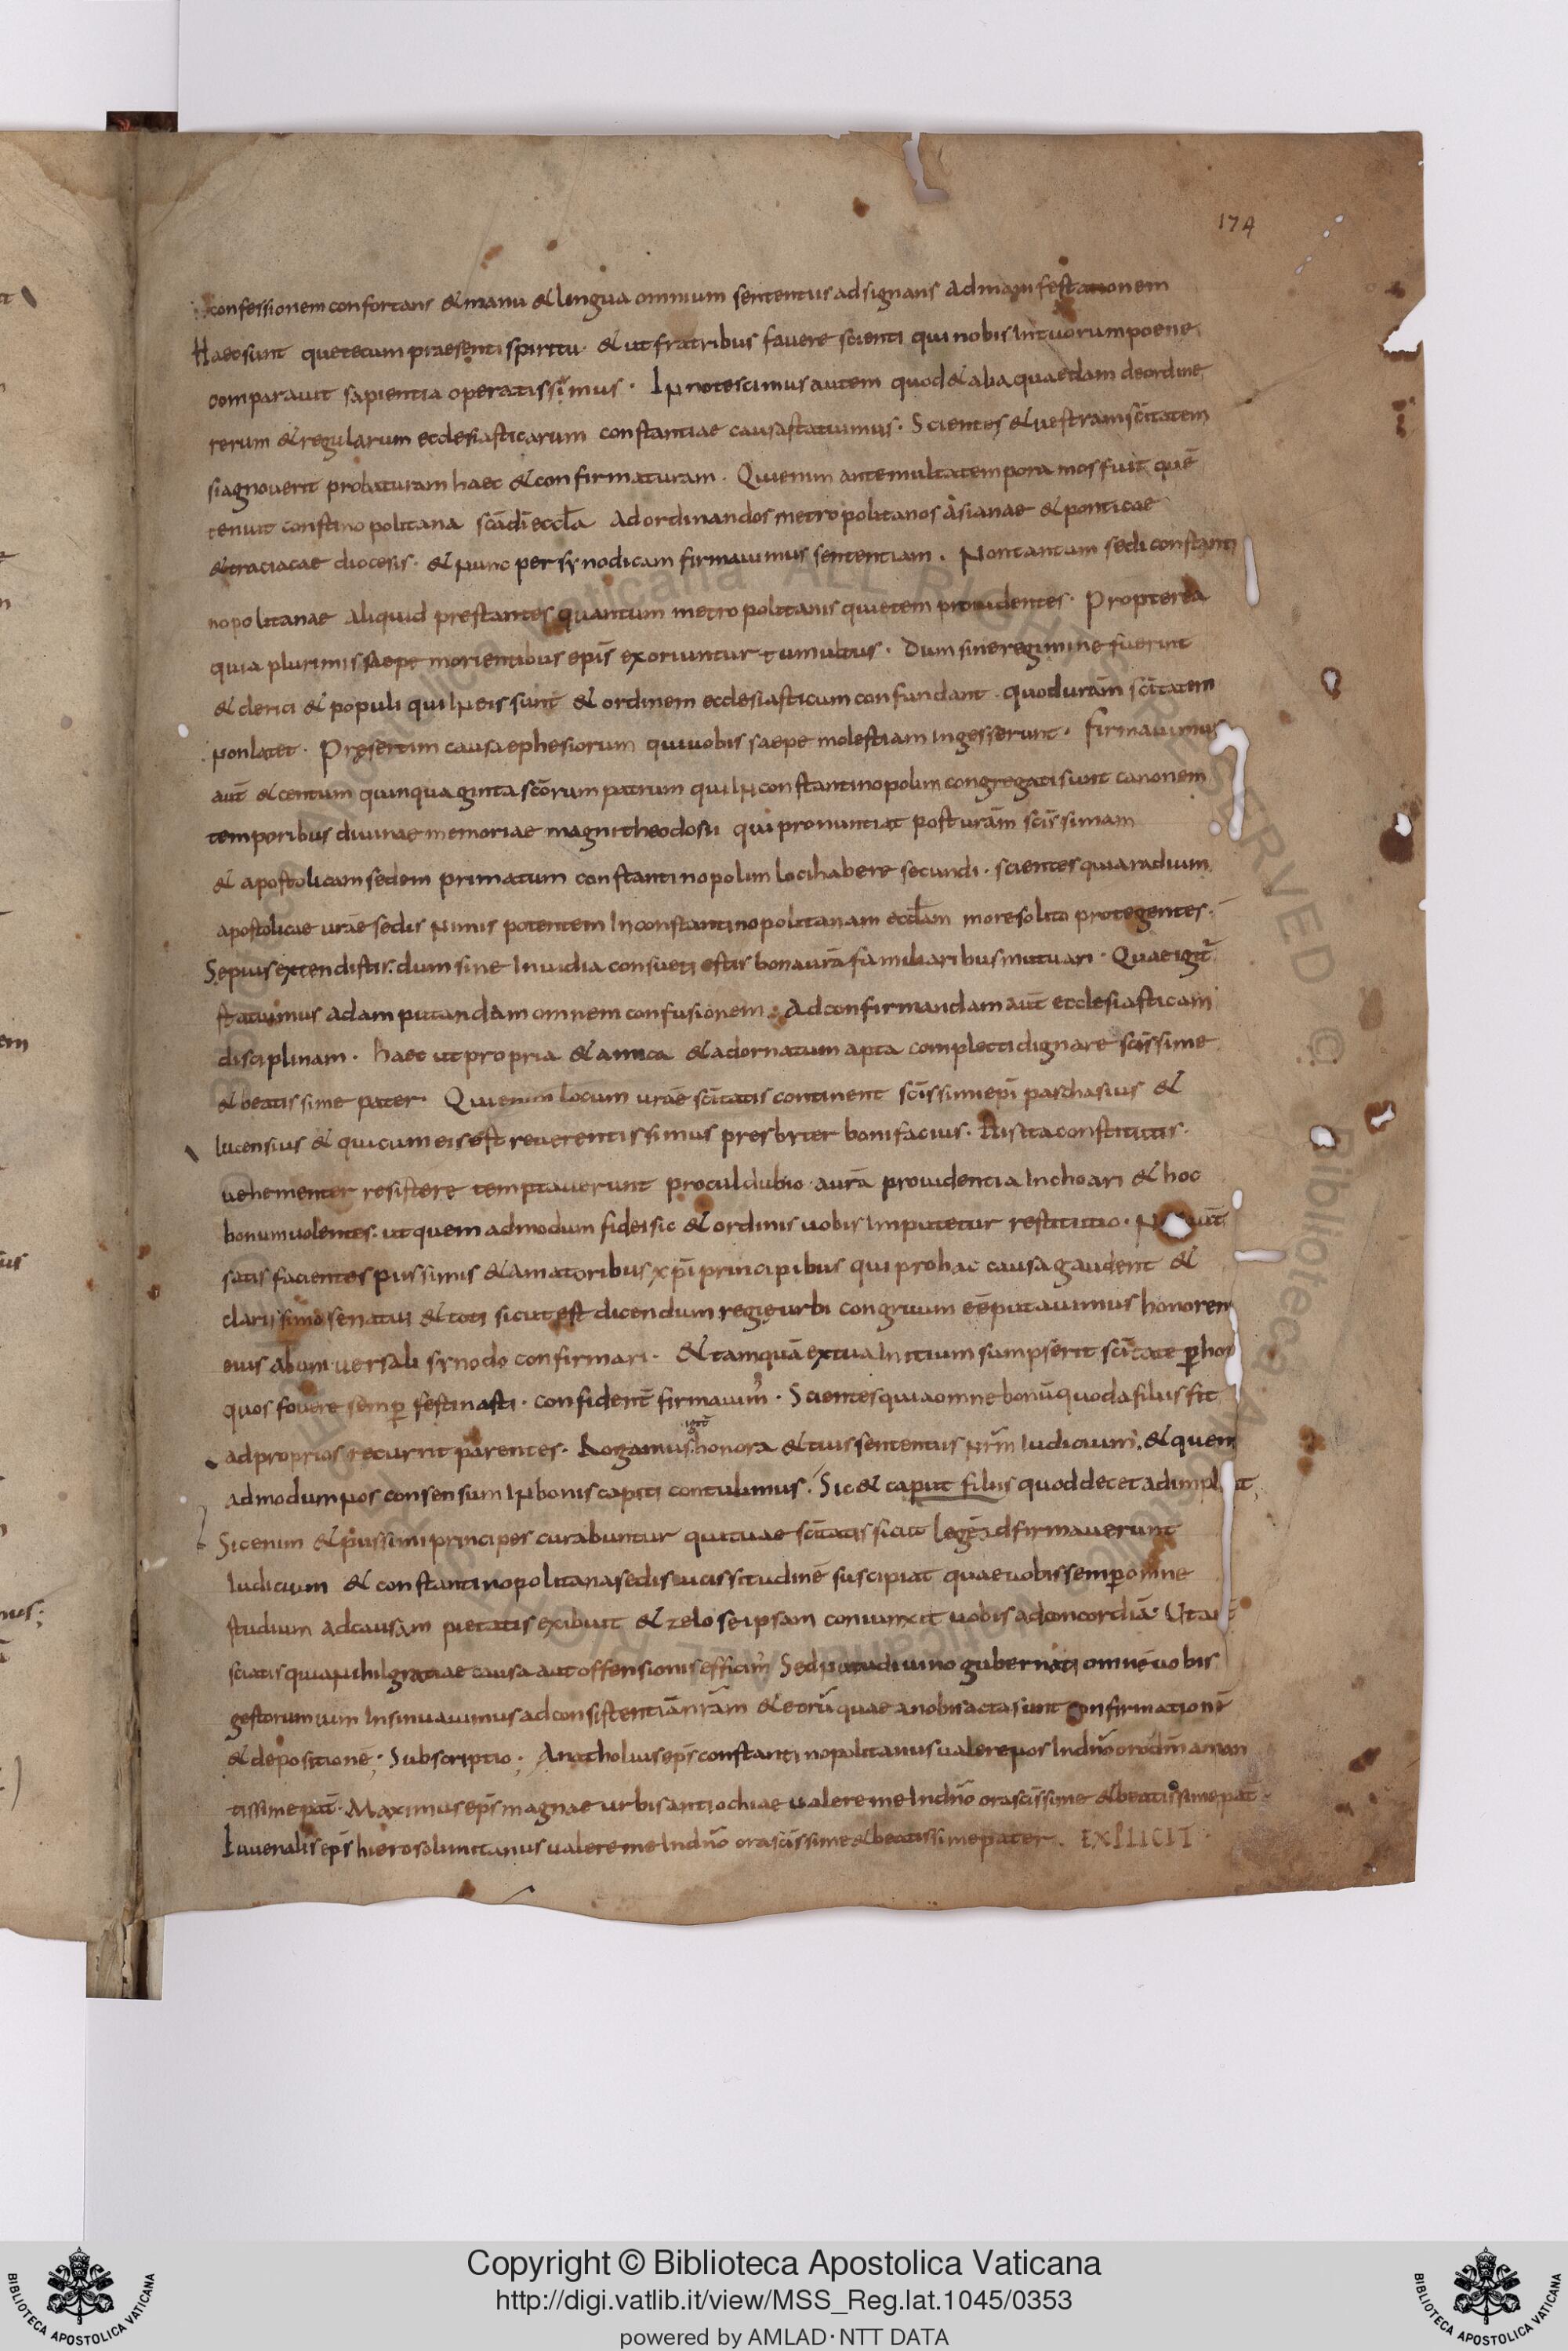 174
confessionem confortans & manu & lingua omnium sententiis adsignans ad manifestationem
Haec sunt quetecum praesenti spiritu · & ut fratribus fauere scienti qui nobis In tuorum poene
comparauit sapientia operatissimus · Innotescimus autem quod & alia quaedam deordine
rerum & regularum ecclesiasticarum constantiae causa statuimus · Scientes & uestram scitatem
si agnouerit probaturam haec & confirmaturam · Qui enim ante multa tempora mos fuit quē
tenuit constino politana scā dī eccła ad ordinandos metropolitanos asianae & ponticae
& traciacae diocesis · & nunc per synodicam firmauimus sententiam · Non tantum sedi constanti
nopolitanae aliquid prestantes quantum metropolitanis quietem prouidentes · Propterea
quia plurimis saepe morientibus epīs exoriuntur tumultus · dum sine regimine fuerint
& clerici & populi qui In eis sunt & ordinem ecclesiasticum confundant · quod urām scītatem
non latet · Presertim causa ephesiorum qui uobis saepe molestiam ingesserunt · firmauimus
aut̄ & centum quinquaginta scōrum patrum qui In constantinopolim congregati sunt canonem
temporibus diuinae memoriae magni theodosii qui pronuntiat post urām scīssimam
& apostolicam sedem primatum constantinopolim loci habere secundi · scientes quia radium
apostolicae urāe sedis nimis potentem In constantinopolitanam eccłam more solito protegentes ·
Sepius extendistis · dum sine Inuidia consueti estis bona urā familiaribus mutuari · Quae igit̄
statuimus ad amputandam omnem confusionem · Ad confirmandam aut̄ ecclesiasticam
disciplinam · haec ut propria & amica & ad ornatum apta complecti dignare scīssime
& beatissime pater · Qui enim locum urāe scītatis continent scīssimi epī paschasius &
lucensius & qui cum eis est reuerentissimus presbyter bonifacius · His ita constitutis ·
uehementer resistere temptauerunt procul dubio · a urā prouidentia Inchoari & hoc
bonum uolentes · ut quemadmodum fidei sic & ordinis uobis Imputetur restitutio ·
satisfacientes piissimis & amatoribus xpī principibus qui pro hac causa gaudent &
clarissimo senatui & toti sicut est dicendum regie urbi congruum eē putauimus honorem
eius ab uniuersali synodo confirmari · & tamquā ex tua Initium sumpserit scītate p hor
quos fouere semp festinasti · confident̄ firmauim̄ · Scientes quia omne bonū quod a filiis fit
ad proprios recurrit parentes · Rogamus igit̄ honora & tuis sententiis nrm̄ Iudicium · & quem
admodum nos consensum In bonis capiti contulimus · Sic & caput filiis quod decet adimpleat
Sic enim & piissimi principes curabuntur qui tuae scītatis sicut legē Id firmauerunt
Iudicium & constantinopolitana sedis uicissitudinē suscipiat quae uobis semp omne
studium ad causam pietatis exibuit & zelo seipsam coniunxit uobis ad concordiā · Ut aut̄
sciatis quia nihil gratiae causa aut offensionis efficim̄ Sed nutu diuino gubernati omnē uobis
gestorum uim Insinuauimus ad consistentiā nrām & eorū quae a nobis acta sunt confirmationē
& depositionē · Subscriptio · Anatholius epīs constantinopolitanus ualere uos In dnō orō dm̄ aman
tissime pat̄ · Maximus epīs magnae urbis antiochiae ualere me In dnō ora scīssime & beatissime pat̄ ·
Iuuenalis epīs hierosolimitanus ualere me In dnō ora scīssime & beatissime pater · EXPLICIT ·
Copyright © Biblioteca Apostolica Vaticana
http://digi.vatlib.it/view/MSS_Reg.lat.1045/0353
powered by AMLAD·NTT DATA
BIBLIOTECA APOSTOLICA VATICANA
BIBLIOTECA APOSTOLICA VATICANA